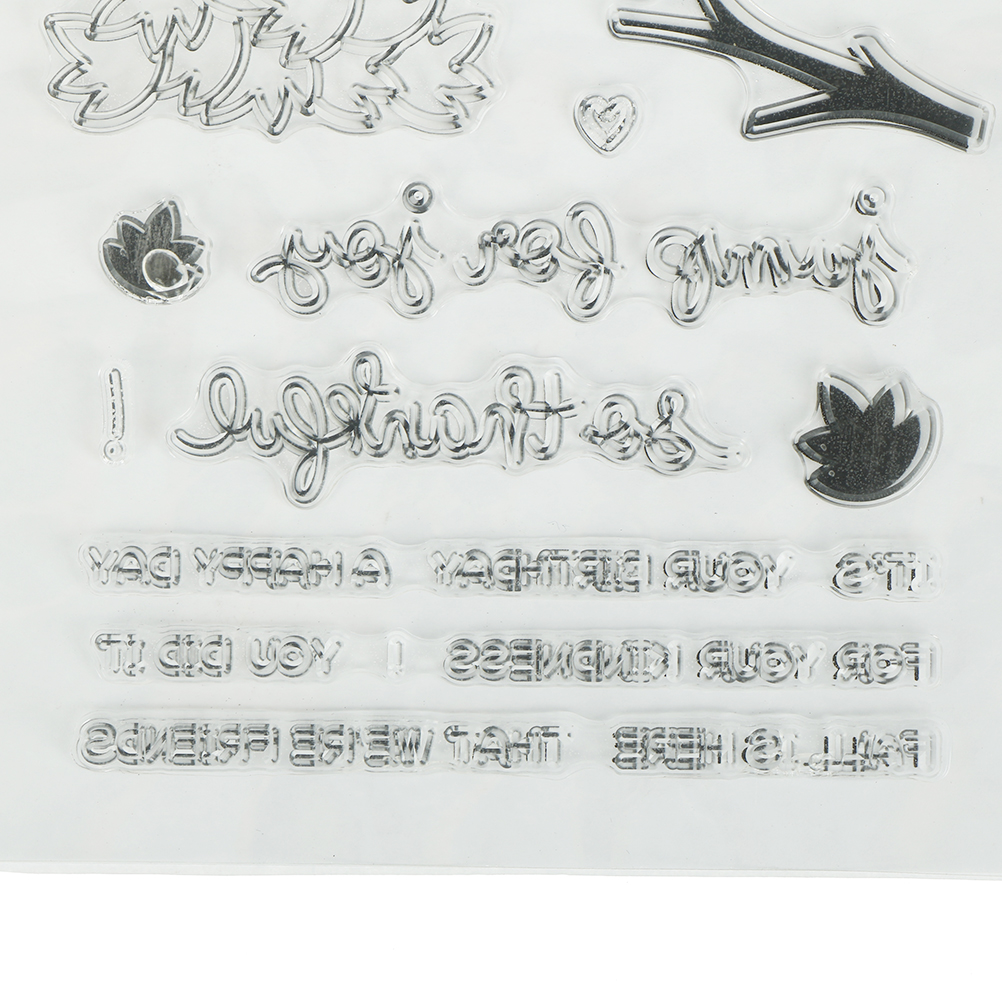 jump for joy
so thankful !
IT'S YOUR BIRTHDAY A HAPPY DAY
FOR YOUR KINDNESS I YOU DID IT
FALL IS HERE THAT WE'RE FRIENDS